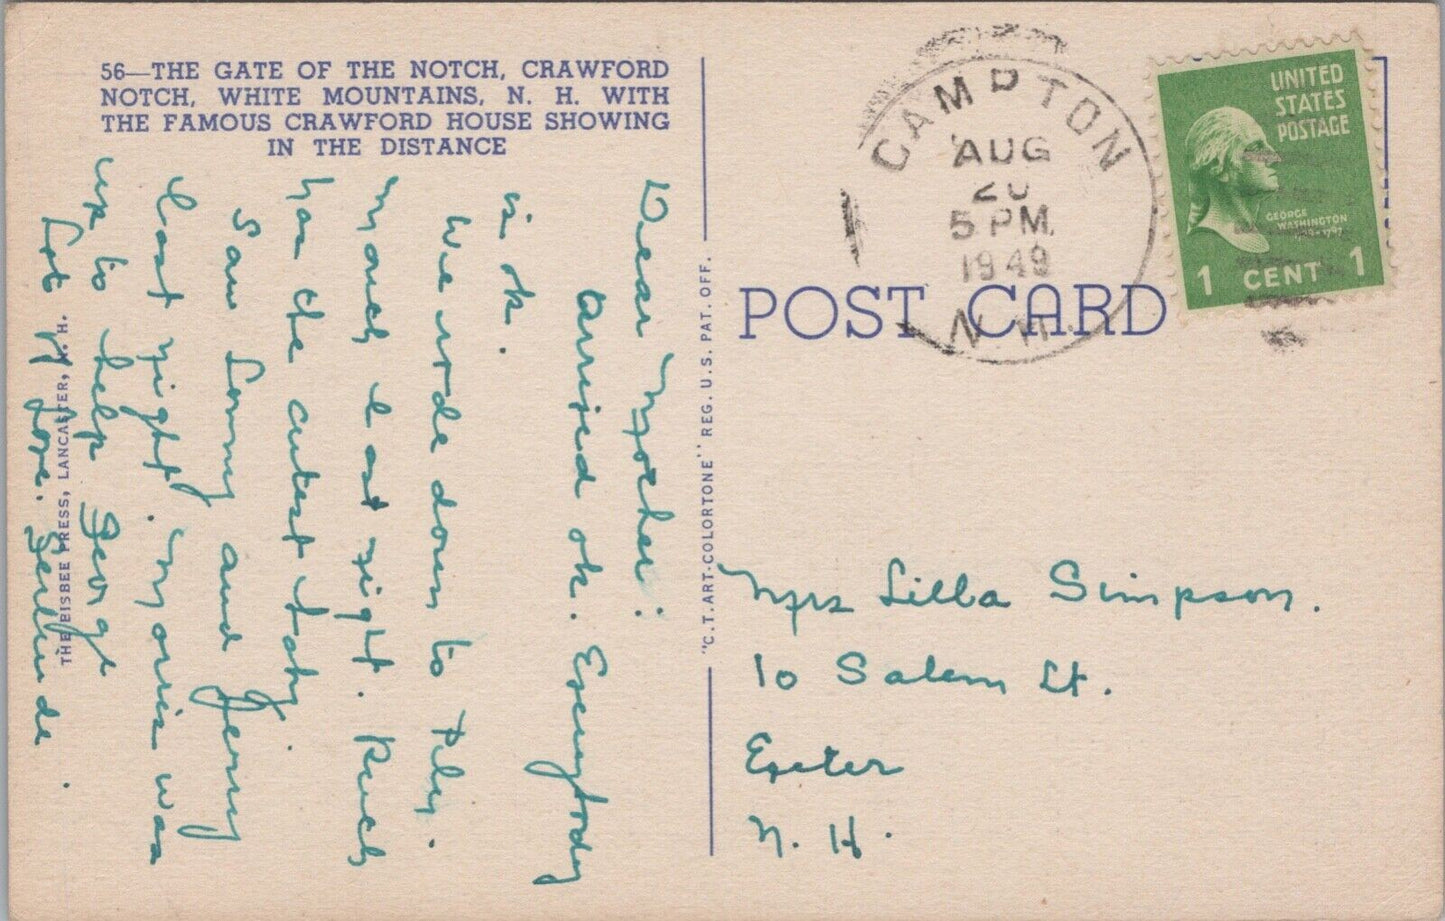 56—THE GATE OF THE NOTCH, CRAWFORD
NOTCH, WHITE MOUNTAINS, N. H. WITH
THE FAMOUS CRAWFORD HOUSE SHOWING
IN THE DISTANCE
Dear Mother:
Arrived ok. Everybody
is ok.
We rode down to Ply.
Mouth last night. Ruth
has the cutest baby.
Saw Lonny and Jerry
last night. Morris was
up to help George
Lots of Love. Gertrude.
THE BISBEE PRESS, LANCASTER, N. H.
"C. T. ART-COLORTONE" REG. U. S. PAT. OFF.
POST CARD
CAMPTON
AUG
20
5 PM
1949
N. H.
UNITED
STATES
POSTAGE
GEORGE
WASHINGTON
1789-1797
1 CENT 1
Mrs Lilla Simpson.
10 Salem St.
Exeter
N. H.